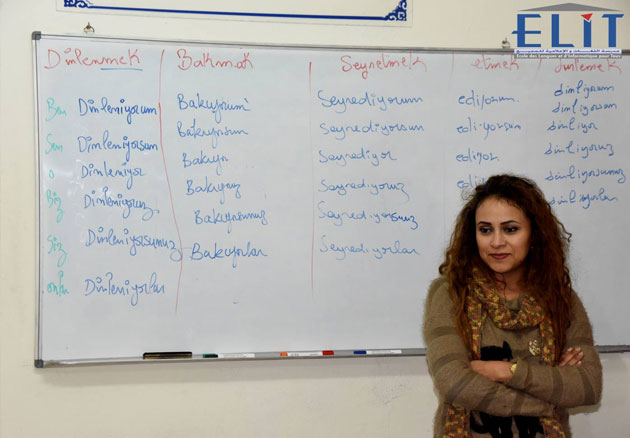 ELIT
Dinlenmek Bakmak Seyretmek etmek dinlemek
Ben Dinleniyorum Bakıyorum Seyrediyorum ediyorum dinliyorum
Sen Dinleniyorsun Bakıyorsun Seyrediyorsun ediyorsun dinliyorsun
o Dinleniyor Bakıyor Seyrediyor ediyor dinliyor
Biz Dinleniyoruz Bakıyoruz Seyrediyoruz dinliyoruz
Siz Dinleniyorsunuz Bakıyorsunuz Seyrediyorsunuz dinliyorsunuz
onlar Dinleniyorlar Bakıyorlar Seyrediyorlar dinliyorlar